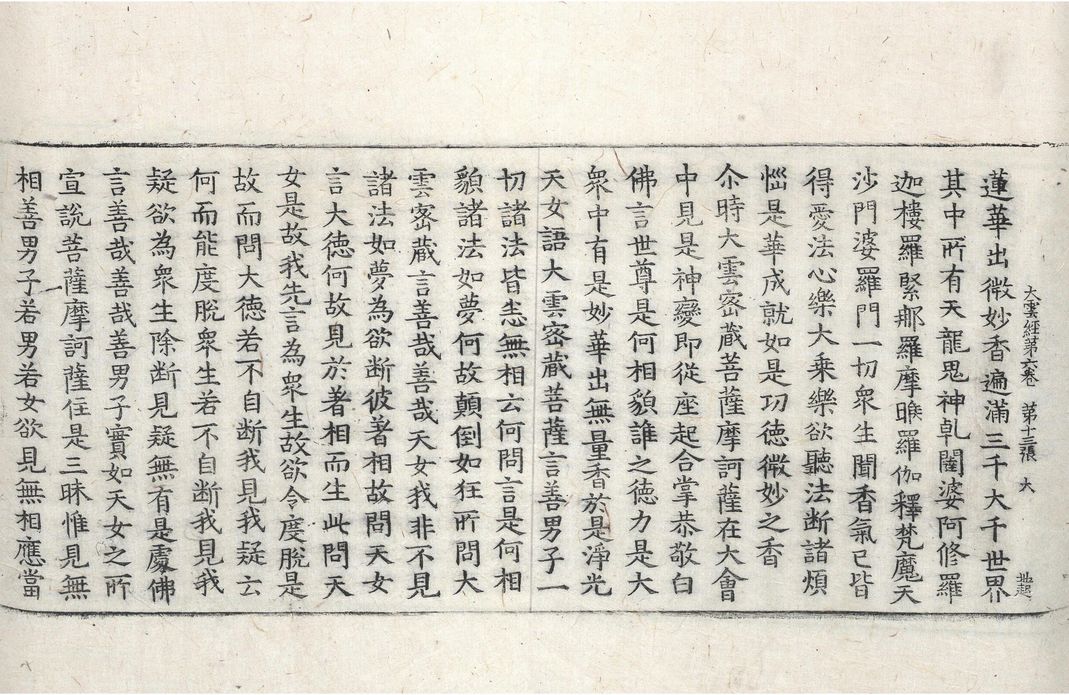 大雲經第六卷　第十三張　大
蓮華出微妙香遍滿三千大千世界
其中所有天龍鬼神乹闥婆阿修羅
迦樓羅緊那羅摩睺羅伽釋梵魔天
沙門婆羅門一切衆生聞香氣已皆
得愛法心樂大乗樂欲聽法断諸煩
惱是華成就如是功德微妙之香
尒時大雲密蔵菩薩摩訶薩在大會
中見是神變即從座起合掌恭敬白
佛言世尊是何相貌誰之德力是大
衆中有是妙華出無量香於是淨光
天女語大雲密蔵菩薩言善男子一
切諸法皆悉無相云何問言是何相
貌諸法如夢何故顛倒如狂所問大
雲密蔵言善哉善哉天女我非不見
諸法如夢為欲断彼著相故問天女
言大德何故見於著相而生此問天
女是故我先言為衆生故欲令度脫是
故而問大德若不自断我見我疑云
何而能度脫衆生若不自断我見我
疑欲為衆生除断見疑無有是處佛
言善哉善哉善男子實如天女之所
宣說菩薩摩訶薩住是三昧惟見無
相善男子若男若女欲見無相應當